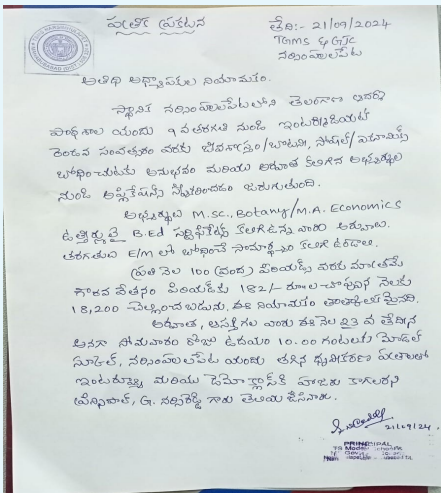 పత్రిక ప్రకటన
తేది:- 21/09/2024
TGMS & GJC
నర్సింహులపేట
అతిథి అధ్యాపకుల నియామకం.
స్థానిక నర్సింహులపేటలోని తెలంగాణ ఆదర్శ
పాఠశాల యందు 9 వ తరగతి నుండి ఇంటర్మీడియట్
రెండవ సంవత్సరం వరకు జీవశాస్త్రం/బోటనీ, సోషల్/ఎకనామిక్స్
బోధించుటకు అనుభవం మరియు అర్హత కలిగిన అభ్యర్థుల
నుండి అప్లికేషన్స్ స్వీకరించడం జరుగుతుంది.
అభ్యర్థులు M.SC., Botany/M.A. Economics
ఉత్తీర్ణులై B.Ed సర్టిఫికేట్స్ కలిగి ఉన్న వారు అర్హులు.
తరగతులు E/M లో బోధించే సామర్థ్యం కలిగి ఉండాలి.
ప్రతి నెల 100 (వంద) పిరియడ్స్ వరకు మాత్రమే
గౌరవ వేతనం పిరియడ్‌కు 182/- రూ॥ల చొప్పున నెలకు
18,200 చెల్లించబడును. ఈ నియామకం తాత్కాలికమైనది.
అర్హత, ఆసక్తి గల వారు ఈ నెల 23 వ తేదీన
అనగా సోమవారం రోజు ఉదయం 10.00 గంటలకు మోడల్
స్కూల్, నర్సింహులపేట యందు తగిన ధృవీకరణ పత్రాలతో
ఇంటర్వ్యూ మరియు డెమో క్లాస్‌కి హాజరు కాగలరని
ప్రిన్సిపాల్, G. నర్సిరెడ్డి గారు తెలియజేసినారు.
21/09/24.
PRINCIPAL